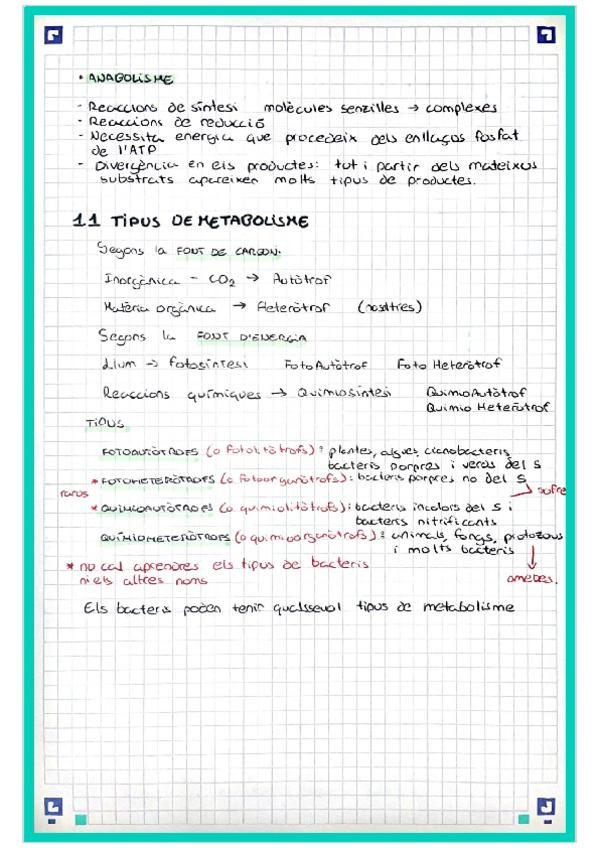 • ANABOLISME
- Reaccions de síntesi molècules senzilles → complexes
- Reaccions de reducció
- Necessita energia que procedeix dels enllaços fosfat
de l'ATP
- Divergència en els productes: tot i partir dels mateixos
substrats apareixen molts tipus de productes.
1.1 TIPUS DE METABOLISME
Segons la FONT DE CARBONI.
Inorgànica - CO2 → Autòtrof
Matèria orgànica → Heteròtrof (nosaltres)
Segons la FONT D'ENERGIA
Llum → fotosíntesi FotoAutòtrof Foto Heteròtrof
Reaccions químiques → Quimiosíntesi QuimioAutòtrof
Quimio Heteròtrof
TIPUS
FOTOAUTÒTROFS (o fotolitòtrofs): plantes, algues, cianobacteris,
bacteris porpres i verds del S
* FOTOHETERÒTROFS (o fotoorganòtrofs): bacteris porpres no del S
raros → sofre
* QUIMIOAUTÒTROFS (o quimiolitòtrofs): bacteris incolors del S i
bacteris nitrificants
QUIMIOHETERÒTROFS (o quimioorganòtrofs): animals, fongs, protozous
i molts bacteris
* no cal aprendres els tipus de bacteris
ni els altres noms
↓ amebes.
Els bacteris poden tenir qualsevol tipus de metabolisme